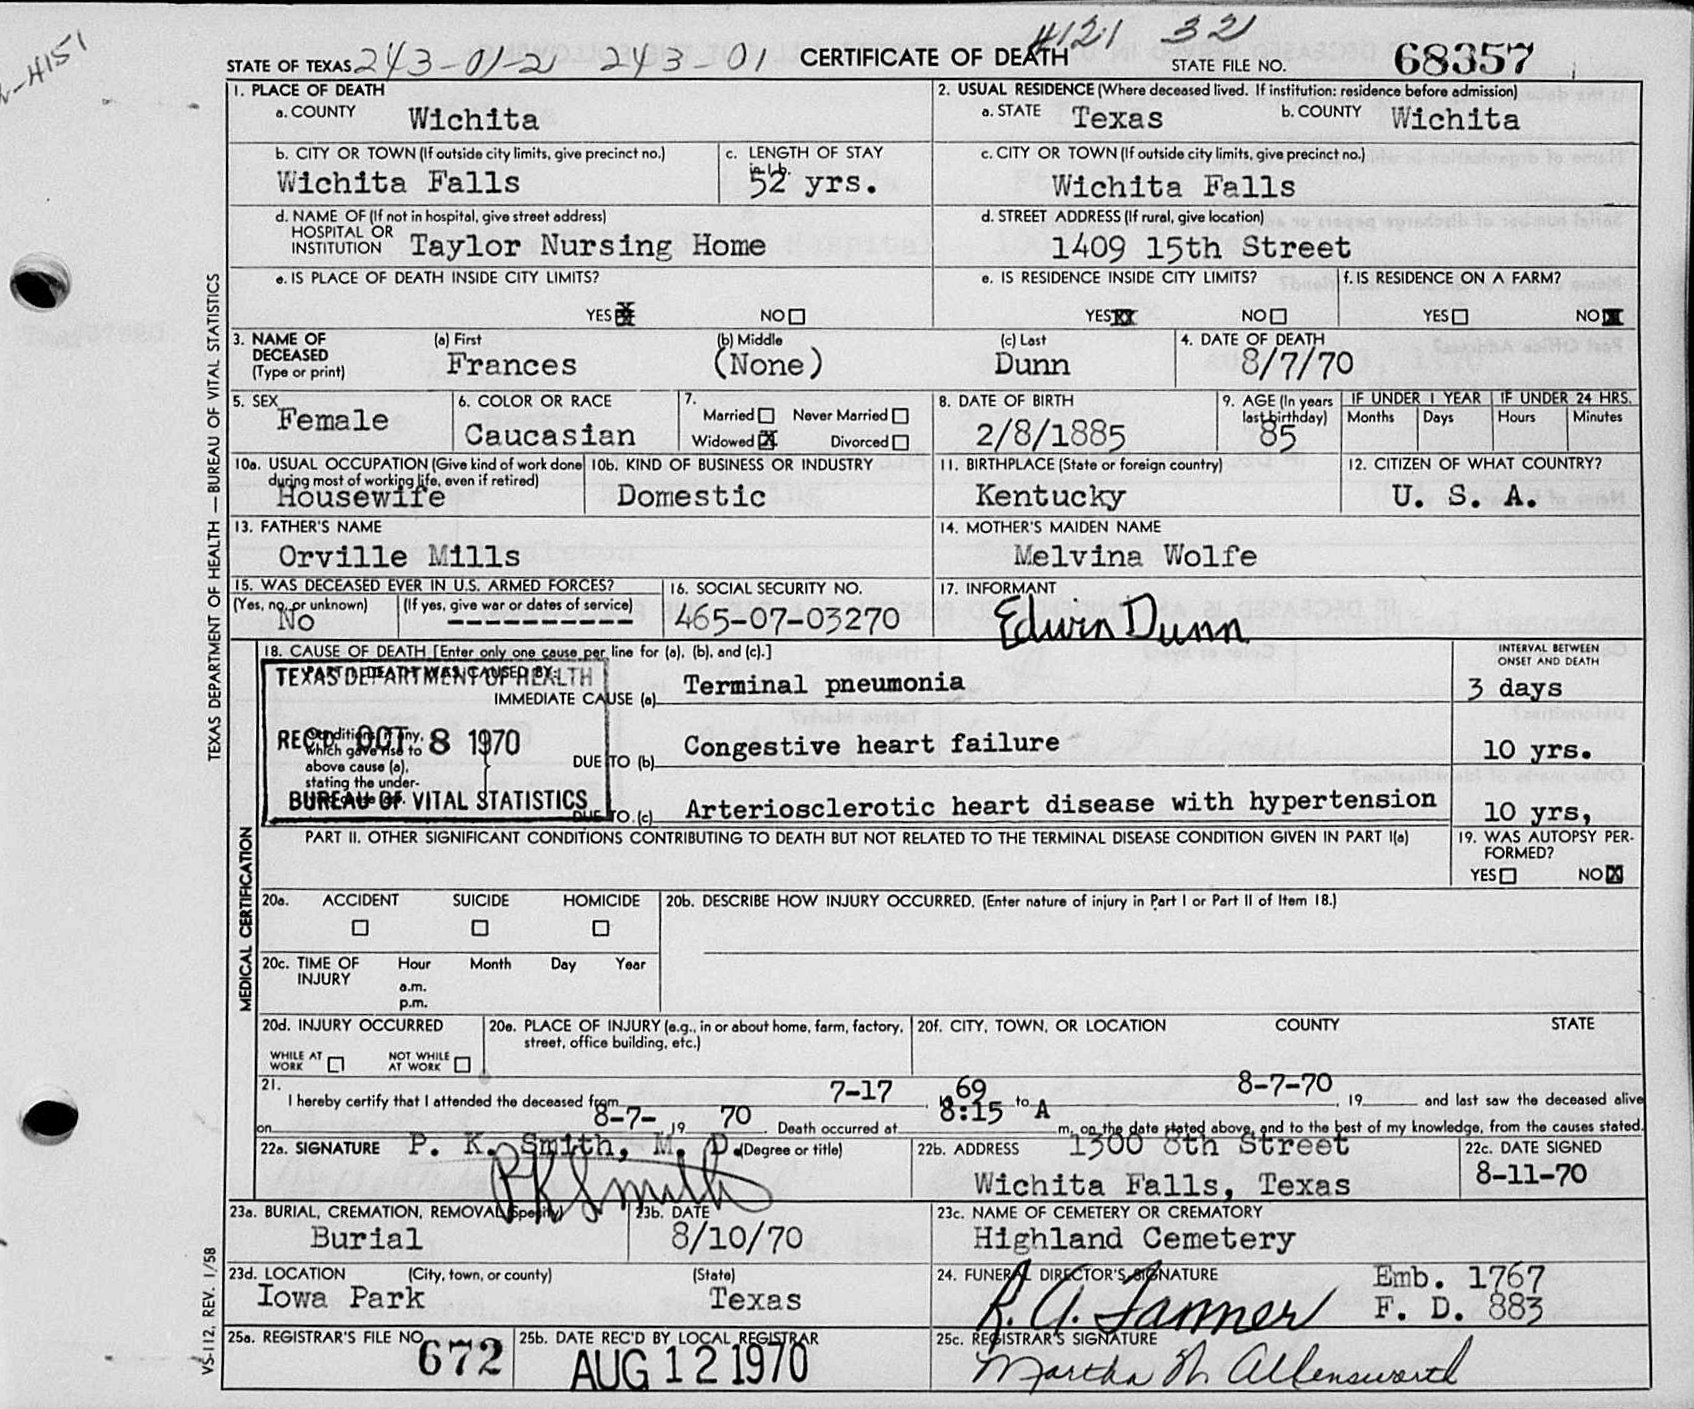 H151
H121 32
STATE OF TEXAS 243-01-2 243-01 CERTIFICATE OF DEATH STATE FILE NO. 68357
1. PLACE OF DEATH
a. COUNTY Wichita
2. USUAL RESIDENCE (Where deceased lived. If institution: residence before admission)
a. STATE Texas b. COUNTY Wichita
b. CITY OR TOWN (If outside city limits, give precinct no.)
Wichita Falls
c. LENGTH OF STAY
in 1b.
52 yrs.
c. CITY OR TOWN (If outside city limits, give precinct no.)
Wichita Falls
d. NAME OF (If not in hospital, give street address)
HOSPITAL OR
INSTITUTION Taylor Nursing Home
d. STREET ADDRESS (If rural, give location)
1409 15th Street
e. IS PLACE OF DEATH INSIDE CITY LIMITS?
YES X NO
e. IS RESIDENCE INSIDE CITY LIMITS?
YES XX NO
f. IS RESIDENCE ON A FARM?
YES NO X
3. NAME OF DECEASED (Type or print)
(a) First (b) Middle (c) Last
Frances (None) Dunn
4. DATE OF DEATH
8/7/70
5. SEX
Female
6. COLOR OR RACE
Caucasian
7.
Married Never Married
Widowed X Divorced
8. DATE OF BIRTH
2/8/1885
9. AGE (In years
last birthday)
85
IF UNDER 1 YEAR IF UNDER 24 HRS.
Months Days Hours Minutes
10a. USUAL OCCUPATION (Give kind of work done
during most of working life, even if retired)
Housewife
10b. KIND OF BUSINESS OR INDUSTRY
Domestic
11. BIRTHPLACE (State or foreign country)
Kentucky
12. CITIZEN OF WHAT COUNTRY?
U. S. A.
13. FATHER'S NAME
Orville Mills
14. MOTHER'S MAIDEN NAME
Melvina Wolfe
15. WAS DECEASED EVER IN U.S. ARMED FORCES?
(Yes, no, or unknown) (If yes, give war or dates of service)
No ----------
16. SOCIAL SECURITY NO.
465-07-03270
17. INFORMANT
Edwin Dunn
18. CAUSE OF DEATH [Enter only one cause per line for (a), (b), and (c).]
INTERVAL BETWEEN
ONSET AND DEATH
TEXAS DEPARTMENT OF HEALTH
IMMEDIATE CAUSE (a) Terminal pneumonia
3 days
REC'D OCT 8 1970
Conditions, if any,
which gave rise to
above cause (a),
stating the under-
DUE TO (b) Congestive heart failure
10 yrs.
BUREAU OF VITAL STATISTICS
DUE TO (c) Arteriosclerotic heart disease with hypertension
10 yrs,
PART II. OTHER SIGNIFICANT CONDITIONS CONTRIBUTING TO DEATH BUT NOT RELATED TO THE TERMINAL DISEASE CONDITION GIVEN IN PART I(a)
19. WAS AUTOPSY PER-
FORMED?
YES NO X
20a. ACCIDENT SUICIDE HOMICIDE
20b. DESCRIBE HOW INJURY OCCURRED. (Enter nature of injury in Part I or Part II of Item 18.)
20c. TIME OF INJURY Hour Month Day Year
a.m.
p.m.
20d. INJURY OCCURRED
WHILE AT WORK NOT WHILE AT WORK
20e. PLACE OF INJURY (e.g., in or about home, farm, factory,
street, office building, etc.)
20f. CITY, TOWN, OR LOCATION COUNTY STATE
21.
I hereby certify that I attended the deceased from 7-17, 19 69 to 8-7-70, 19 and last saw the deceased alive
on 8-7- 19 70. Death occurred at 8:15 A m. on the date stated above, and to the best of my knowledge, from the causes stated.
22a. SIGNATURE P. K. Smith, M. D. (Degree or title)
P K Smith
22b. ADDRESS 1300 8th Street
Wichita Falls, Texas
22c. DATE SIGNED
8-11-70
23a. BURIAL, CREMATION, REMOVAL (Specify)
Burial
23b. DATE
8/10/70
23c. NAME OF CEMETERY OR CREMATORY
Highland Cemetery
23d. LOCATION (City, town, or county) (State)
Iowa Park Texas
24. FUNERAL DIRECTOR'S SIGNATURE
R. A. Tanner
Emb. 1767
F. D. 883
25a. REGISTRAR'S FILE NO. 672
25b. DATE REC'D BY LOCAL REGISTRAR
AUG 12 1970
25c. REGISTRAR'S SIGNATURE
Martha N. Allensworth
TEXAS DEPARTMENT OF HEALTH — BUREAU OF VITAL STATISTICS
MEDICAL CERTIFICATION
VS-112, REV. 1/58